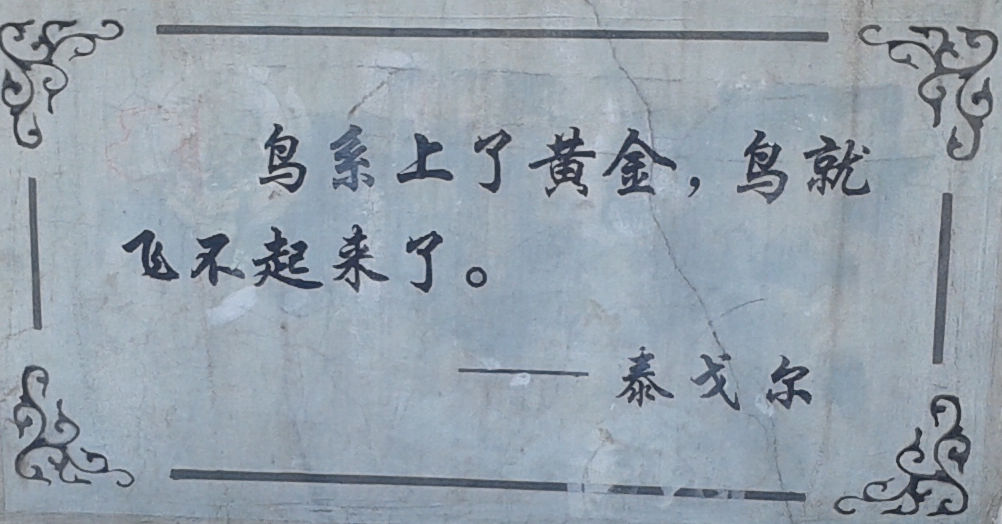 鸟系上了黄金，鸟就
飞不起来了。
——泰戈尔